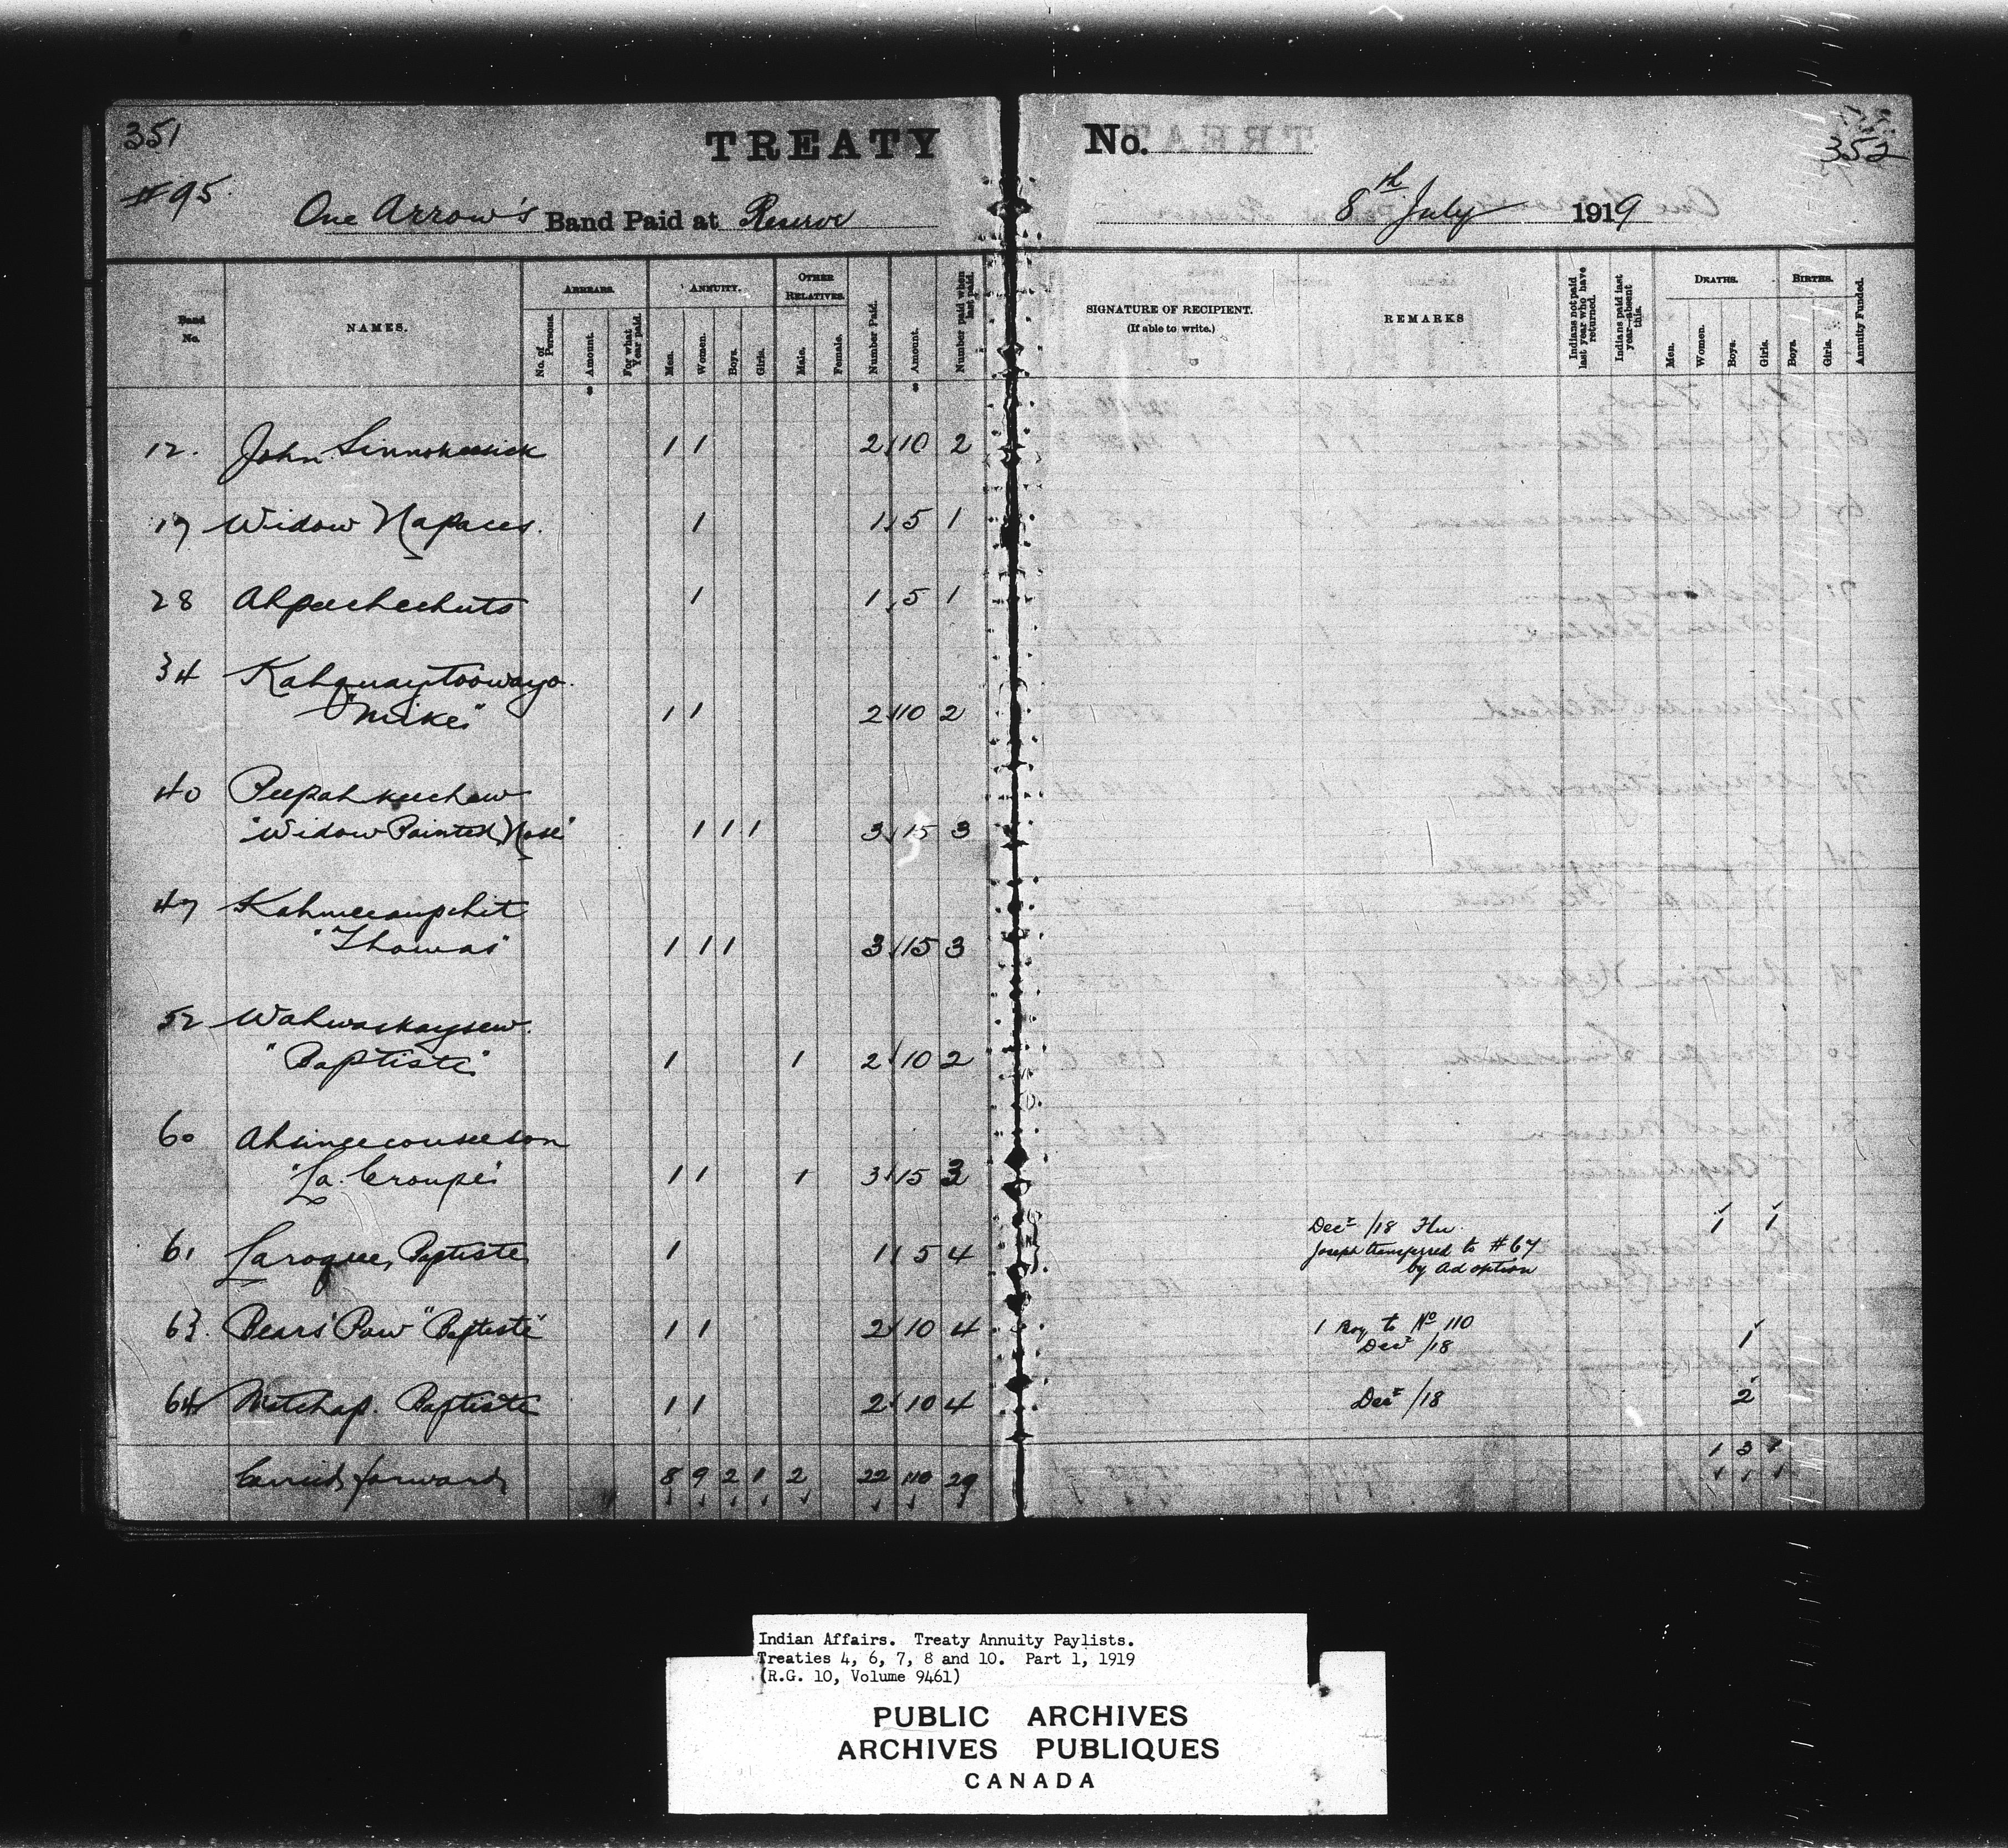 351
TREATY
No.
352
#95.
One Arrow's Band Paid at Reserve
8th July 1919
Band No.
NAMES.
ARREARS.
No. of Persons.
$ Amount.
For what Year paid.
ANNUITY.
Men.
Women.
Boys.
Girls.
OTHER RELATIVES.
Male.
Female.
Number Paid.
$ Amount.
Number paid when last paid.
SIGNATURE OF RECIPIENT.
(If able to write.)
REMARKS
Indians not paid last year who have returned.
Indians paid last year—absent this.
DEATHS.
Men.
Women.
Boys.
Girls.
BIRTHS.
Boys.
Girls.
Annuity Funded.
12. John Sinnokeesick 1 1 2 10 2
17 Widow Napaces. 1 1 5 1
28 Ahpeecheehuts 1 1 5 1
34 Kahquaytoowayo.
"Mike" 1 1 2 10 2
40 Peepahkeechew
"Widow Painted Nose" 1 1 1 3 15 3
47 Kahmeeaupchit
"Thomas" 1 1 1 3 15 3
52 Wahwaskaysew.
"Baptiste" 1 1 2 10 2
60 Ahsineeconseeson
"La Croupe" 1 1 1 3 15 3
61 Laroque, Baptiste 1 1 5 4 Dec /18 Flu. 1 1
Joseph transferred to #67
by Adoption
63. Bears' Paw "Baptiste" 1 1 2 10 4 1 Boy to No 110 1
Dec /18
64 Mitchap. Baptiste 1 1 2 10 4 Dec /18 2
Carried forward 8 9 2 1 2 22 110 29 1 3 1
Indian Affairs. Treaty Annuity Paylists.
Treaties 4, 6, 7, 8 and 10. Part 1, 1919
(R.G. 10, Volume 9461)
PUBLIC ARCHIVES
ARCHIVES PUBLIQUES
CANADA